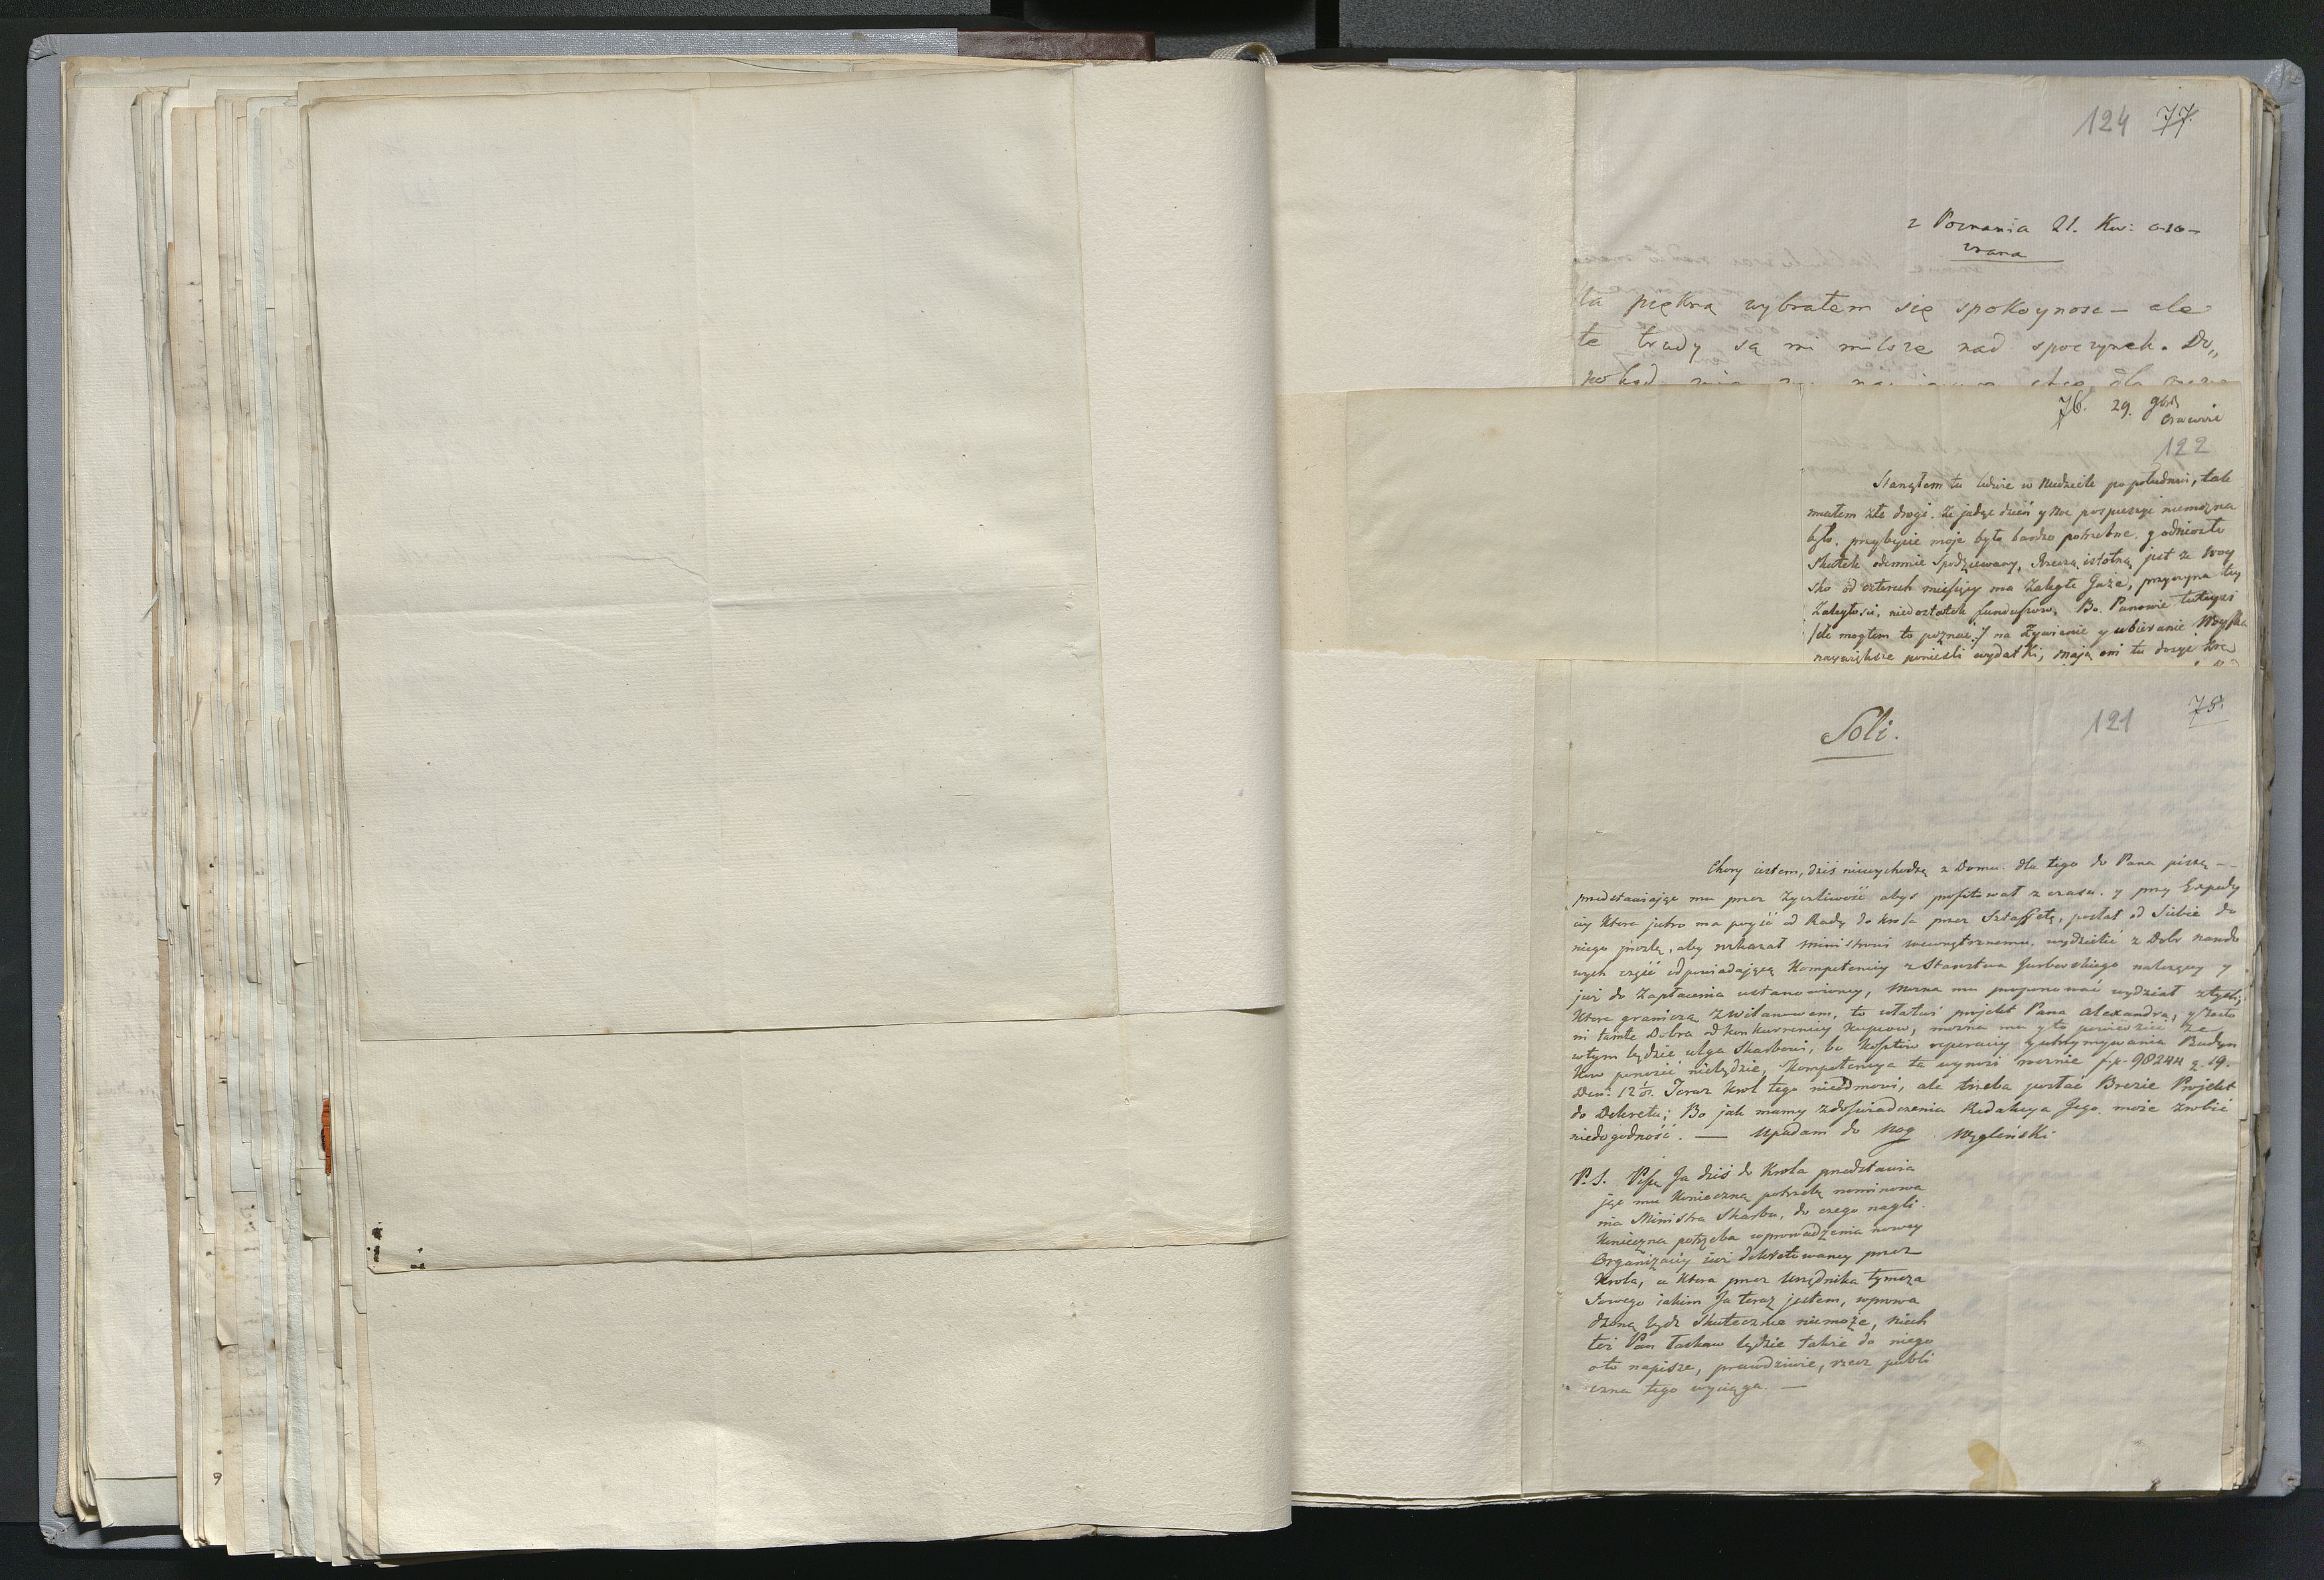 124 77.
z Poznania 21. Kw:
zrana
ta piękną wybrałem się spokoynosc — ale
te trudy są mi milsze nad spoczynek. Do„
76. 29. 9br
Cracovie
122
Stanąłem tu ledwie w Niedziele po południu, tak
miałem złe drogi. że jadąc dzień y Noc pospieszyć niemożna
było. przybycie moje było bardzo potrzebne. y odniosło
Skutek odemnie Spodziewany, Rzeczą istotną jest że Woy
sko od czterech miesięcy ma Zaległe Gaże, przyczyna tey
Zaległosci, niedostatek funduszow. Bo Panowie tuteysi
/ile mogłem to poznać:/ na Żywienie y ubieranie Woyska
naywiększe ponieśli wydatki, mają oni tu dosyć
Soli.
121 75.
Chory iestem, dziś niewychodzę z Domu. dla tego do Pana piszę —
przedstawiając mu przez życzliwość abyś profitował z czasu. y przy Expedy
cyi Ktora jutro ma poyść od Rady do krola przez Sztaffetę, posłał od Siebie do
niego prozbę, aby nakazał Ministrowi wewnętrznemu. wydzielić z Dobr narodo
wych część odpowiadającą Kompetencyi z Starostwa Jurborskiego należącey y
już do Zapłacenia ustanowioney, Można mu proponować wydział z tych,
Ktore graniczą z Wilanowem, to ułatwi projekt Pana Alexandra, y
ni tamte Dobra od konkurrencyi Kupcow, można mu y to powiedzieć że
w tym będzie ulga Skarbowi, bo kosztow reperacyi y utrzymywania Budyn
kow ponosić niebędzie, Kompetencya ta wynosi rocznie 98244 g. 19.
Den: 12 Teraz krol tego nieodmowi, ale trzeba posłać Brezie Projekt
do Dekretu; Bo jak mamy zdoświadczenia Redakcya Jego może zrobić
niedogodność. — Upadam do Nog Węgleński
P. S. Piszę Ja dziś do Krola przedstawia
jąc mu Konieczną potrzebę nominowa
nia Ministra Skarbu, do czego nagli
Konieczna potrzeba wprowadzenia nowey
Organizacyi iuż dekretowaney przez
Krola, a Ktora przez Urzędnika tymcza
sowego iakim Ja teraz jestem, wprowa
dzoną bydz Skutecznie niemoże, niech
też Pan łaskaw będzie także do niego
o to napisze, prawdziwie, rzecz publi
czna tego wyciąga. —